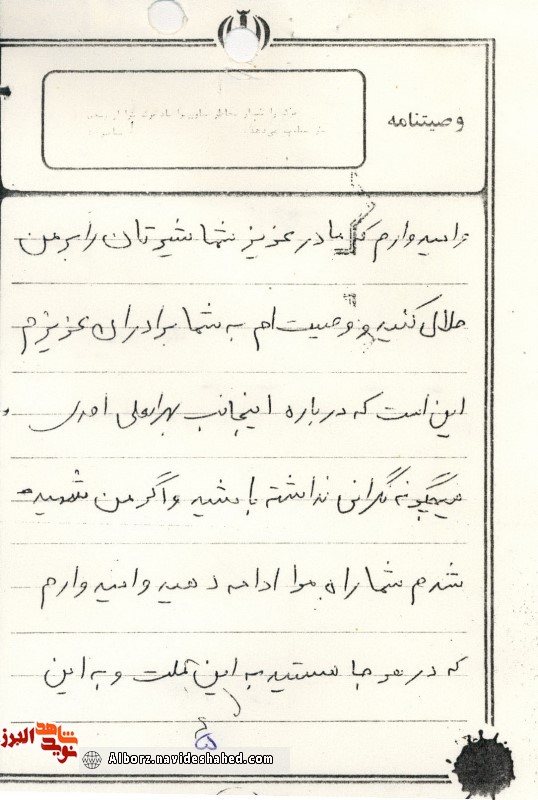 وصیتنامه
وامیدوارم که مادر عزیز شما شیرتان را بر من
حلال کنید و وصیت ام به شما برادران عزیزم
این است که درباره اینجانب بهرامعلی احدی
هیچگونه نگرانی نداشته باشید و اگر من شهید
شدم شما راه مرا ادامه دهید و امیدوارم
که در هر جا هستید به این ملت و به این
۵
نوید شاهد البرز
Alborz.navideshahed.com